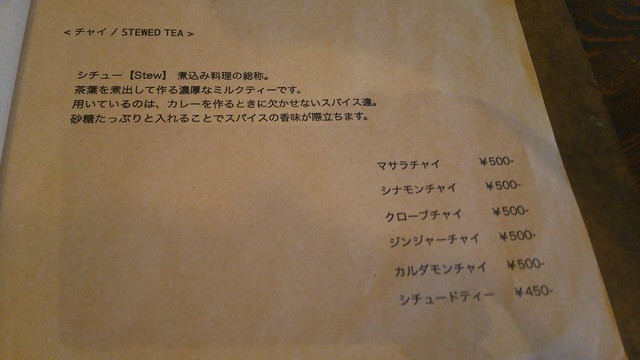 < チャイ / STEWED TEA >
シチュー【Stew】 煮込み料理の総称。
茶葉を煮出して作る濃厚なミルクティーです。
用いているのは、カレーを作るときに欠かせないスパイス達。
砂糖たっぷりと入れることでスパイスの香味が際立ちます。
マサラチャイ ¥500-
シナモンチャイ ¥500-
クローブチャイ ¥500-
ジンジャーチャイ ¥500-
カルダモンチャイ ¥500-
シチュードティー ¥450-